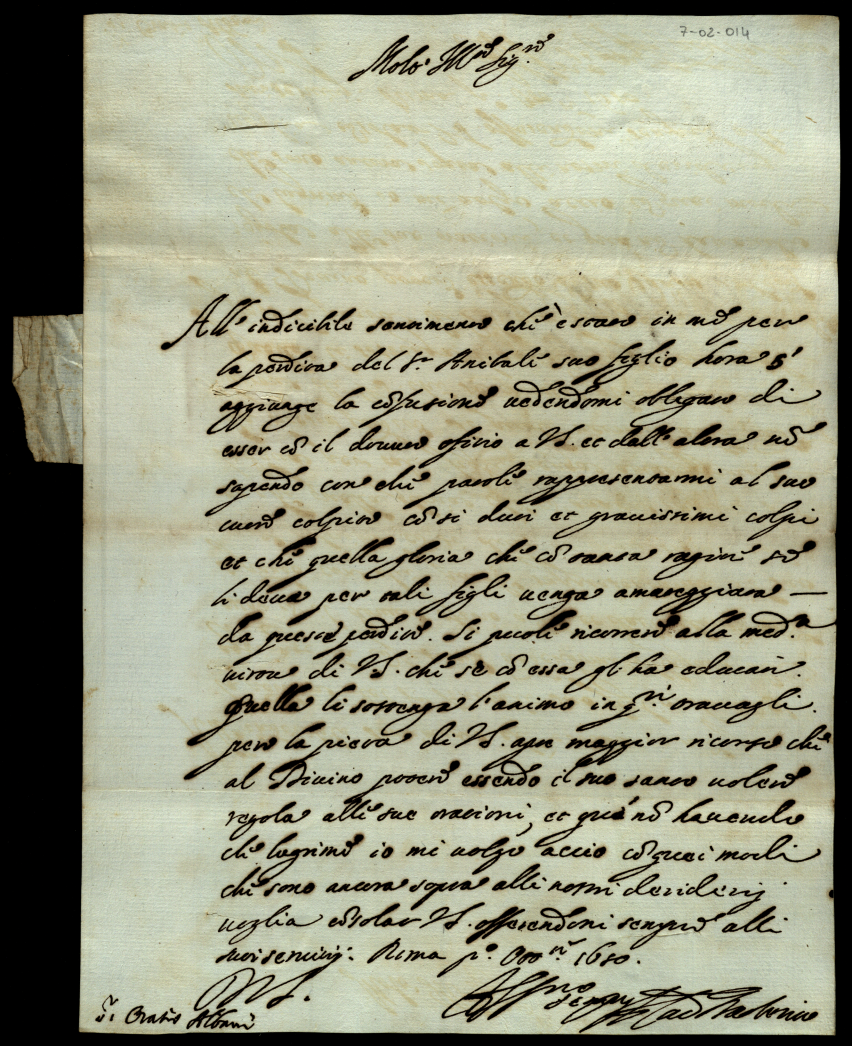 7-02-014
Molto Ill.re Sig.re
All' indicibile sentimento che è stato in me per
la perdita del S.r Anibale suo figlio hora s'
aggiunge la cōfusione vedendomi obligato di
esser cō il douuto ofitio a V.S. et dall' altra nō
sapendo con che parole rappresentarmi al suo
cuore colpito cō si duri et grauissimi colpi
et che quella gloria che cō tanta ragione se
li deue per tali figli uenga amareggiata —
da queste perdite. Si puole ricorrere alla med.a
uirtu di V.S. che se cō essa gl' ha educati.
Quella li sostenga l'animo in q.ti trauagli.
però la pieta di V.S. apre maggior ricorso che
al Diuino potere essendo il suo santo uolere
regola alle sue orationi, et qui nō hauendo
che lagrime io mi uolgo accio cō quei modi
che sono ancora sopra alli nostri desiderij
uoglia cōsolar V.S. offerendomi sempre alli
suoi seruitij. Roma p.o 1610.
D.V.S.
Aff.mo
S.r Oratio Albani